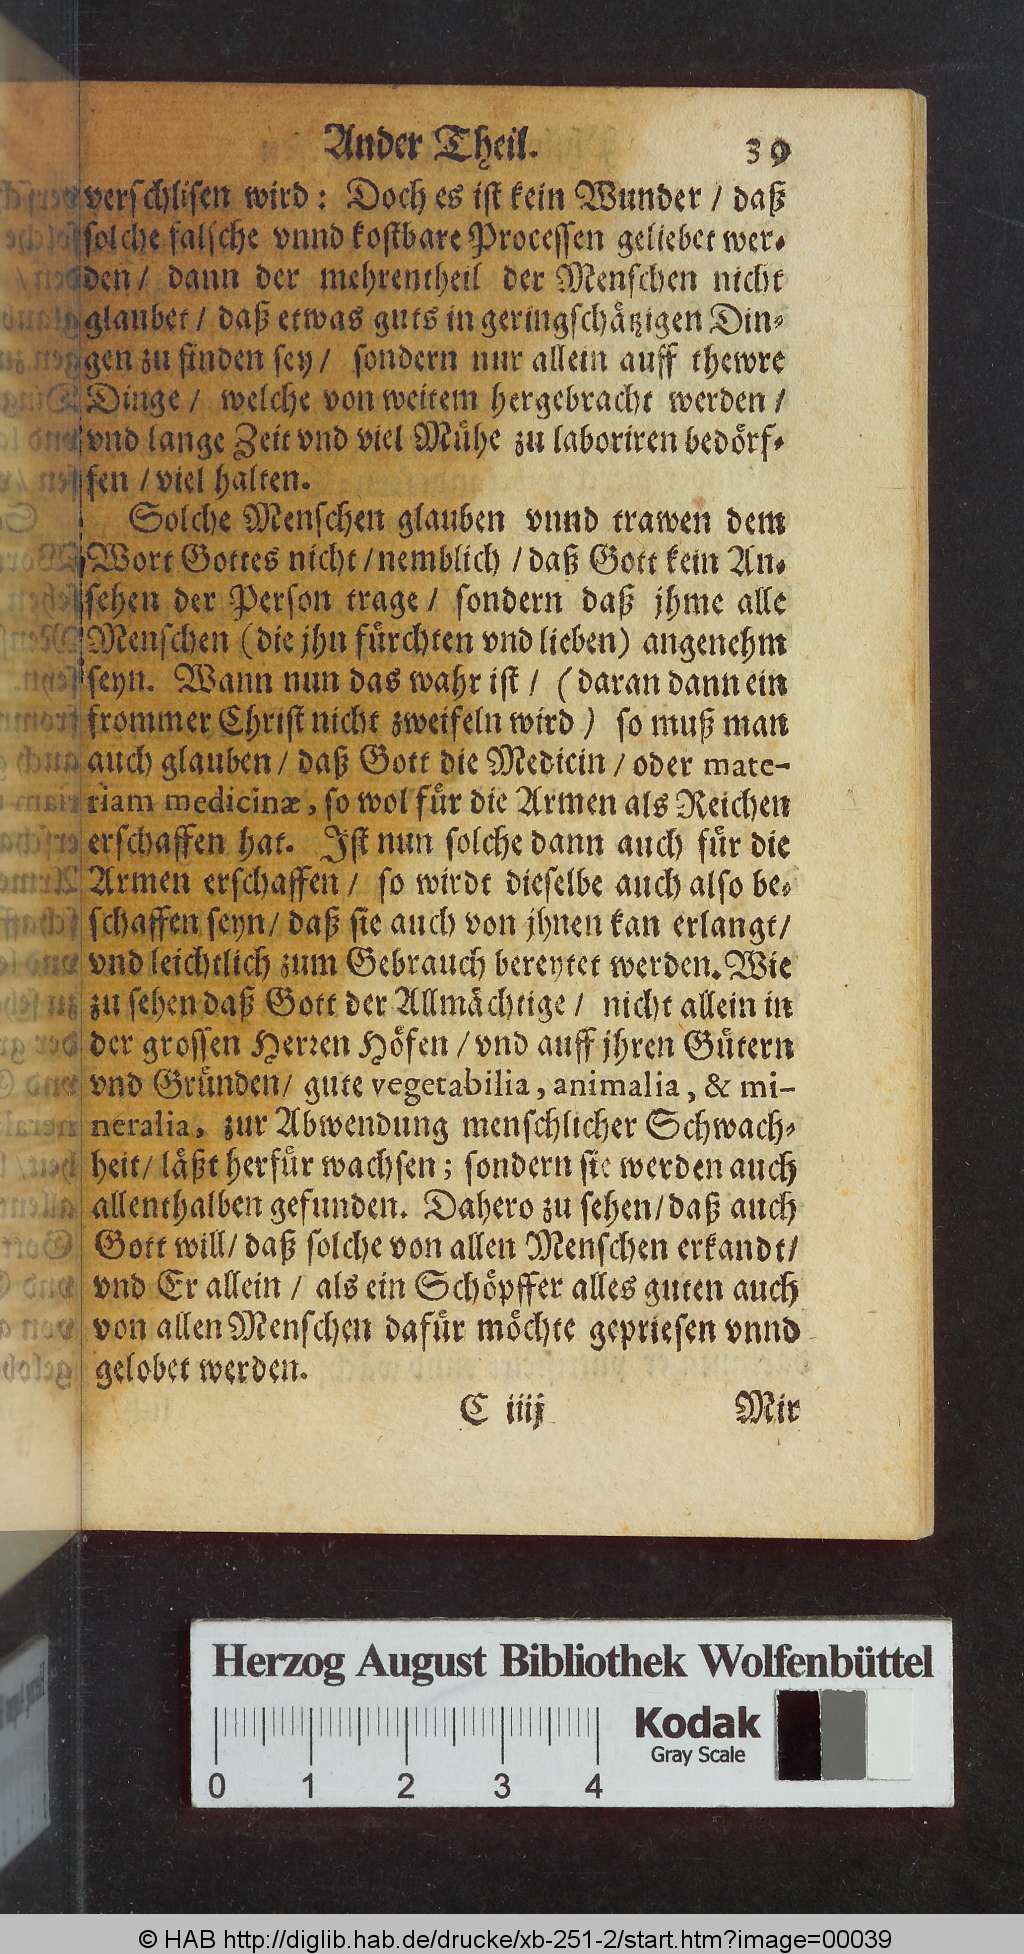 Ander Theil. 39
verschlisen wird: Doch es ist kein Wunder / daß
solche falsche vnnd kostbare Processen geliebet wer-
den / dann der mehrentheil der Menschen nicht
glaubet / daß etwas guts in geringschätzigen Din-
gen zu finden sey / sondern nur allein auff thewre
Dinge / welche von weitem hergebracht werden /
vnd lange Zeit vnd viel Mühe zu laboriren bedörf-
fen / viel halten.
Solche Menschen glauben vnnd trawen dem
Wort Gottes nicht / nemblich / daß Gott kein An-
sehen der Person trage / sondern daß jhme alle
Menschen (die jhn fürchten vnd lieben) angenehm
seyn. Wann nun das wahr ist / (daran dann ein
frommer Christ nicht zweifeln wird) so muß man
auch glauben / daß Gott die Medicin / oder mate-
riam medicinæ, so wol für die Armen als Reichen
erschaffen hat. Ist nun solche dann auch für die
Armen erschaffen / so wirdt dieselbe auch also be-
schaffen seyn / daß sie auch von jhnen kan erlangt /
vnd leichtlich zum Gebrauch bereytet werden. Wie
zu sehen daß Gott der Allmächtige / nicht allein in
der grossen Herren Höfen / vnd auff jhren Gütern
vnd Gründen / gute vegetabilia, animalia, & mi-
neralia, zur Abwendung menschlicher Schwach-
heit / läßt herfür wachsen; sondern sie werden auch
allenthalben gefunden. Dahero zu sehen / daß auch
Gott will / daß solche von allen Menschen erkandt /
vnd Er allein / als ein Schöpffer alles guten auch
von allen Menschen dafür möchte gepriesen vnnd
gelobet werden.
C iiij Mir
Herzog August Bibliothek Wolfenbüttel
Kodak
Gray Scale
0 1 2 3 4
© HAB http://diglib.hab.de/drucke/xb-251-2/start.htm?image=00039